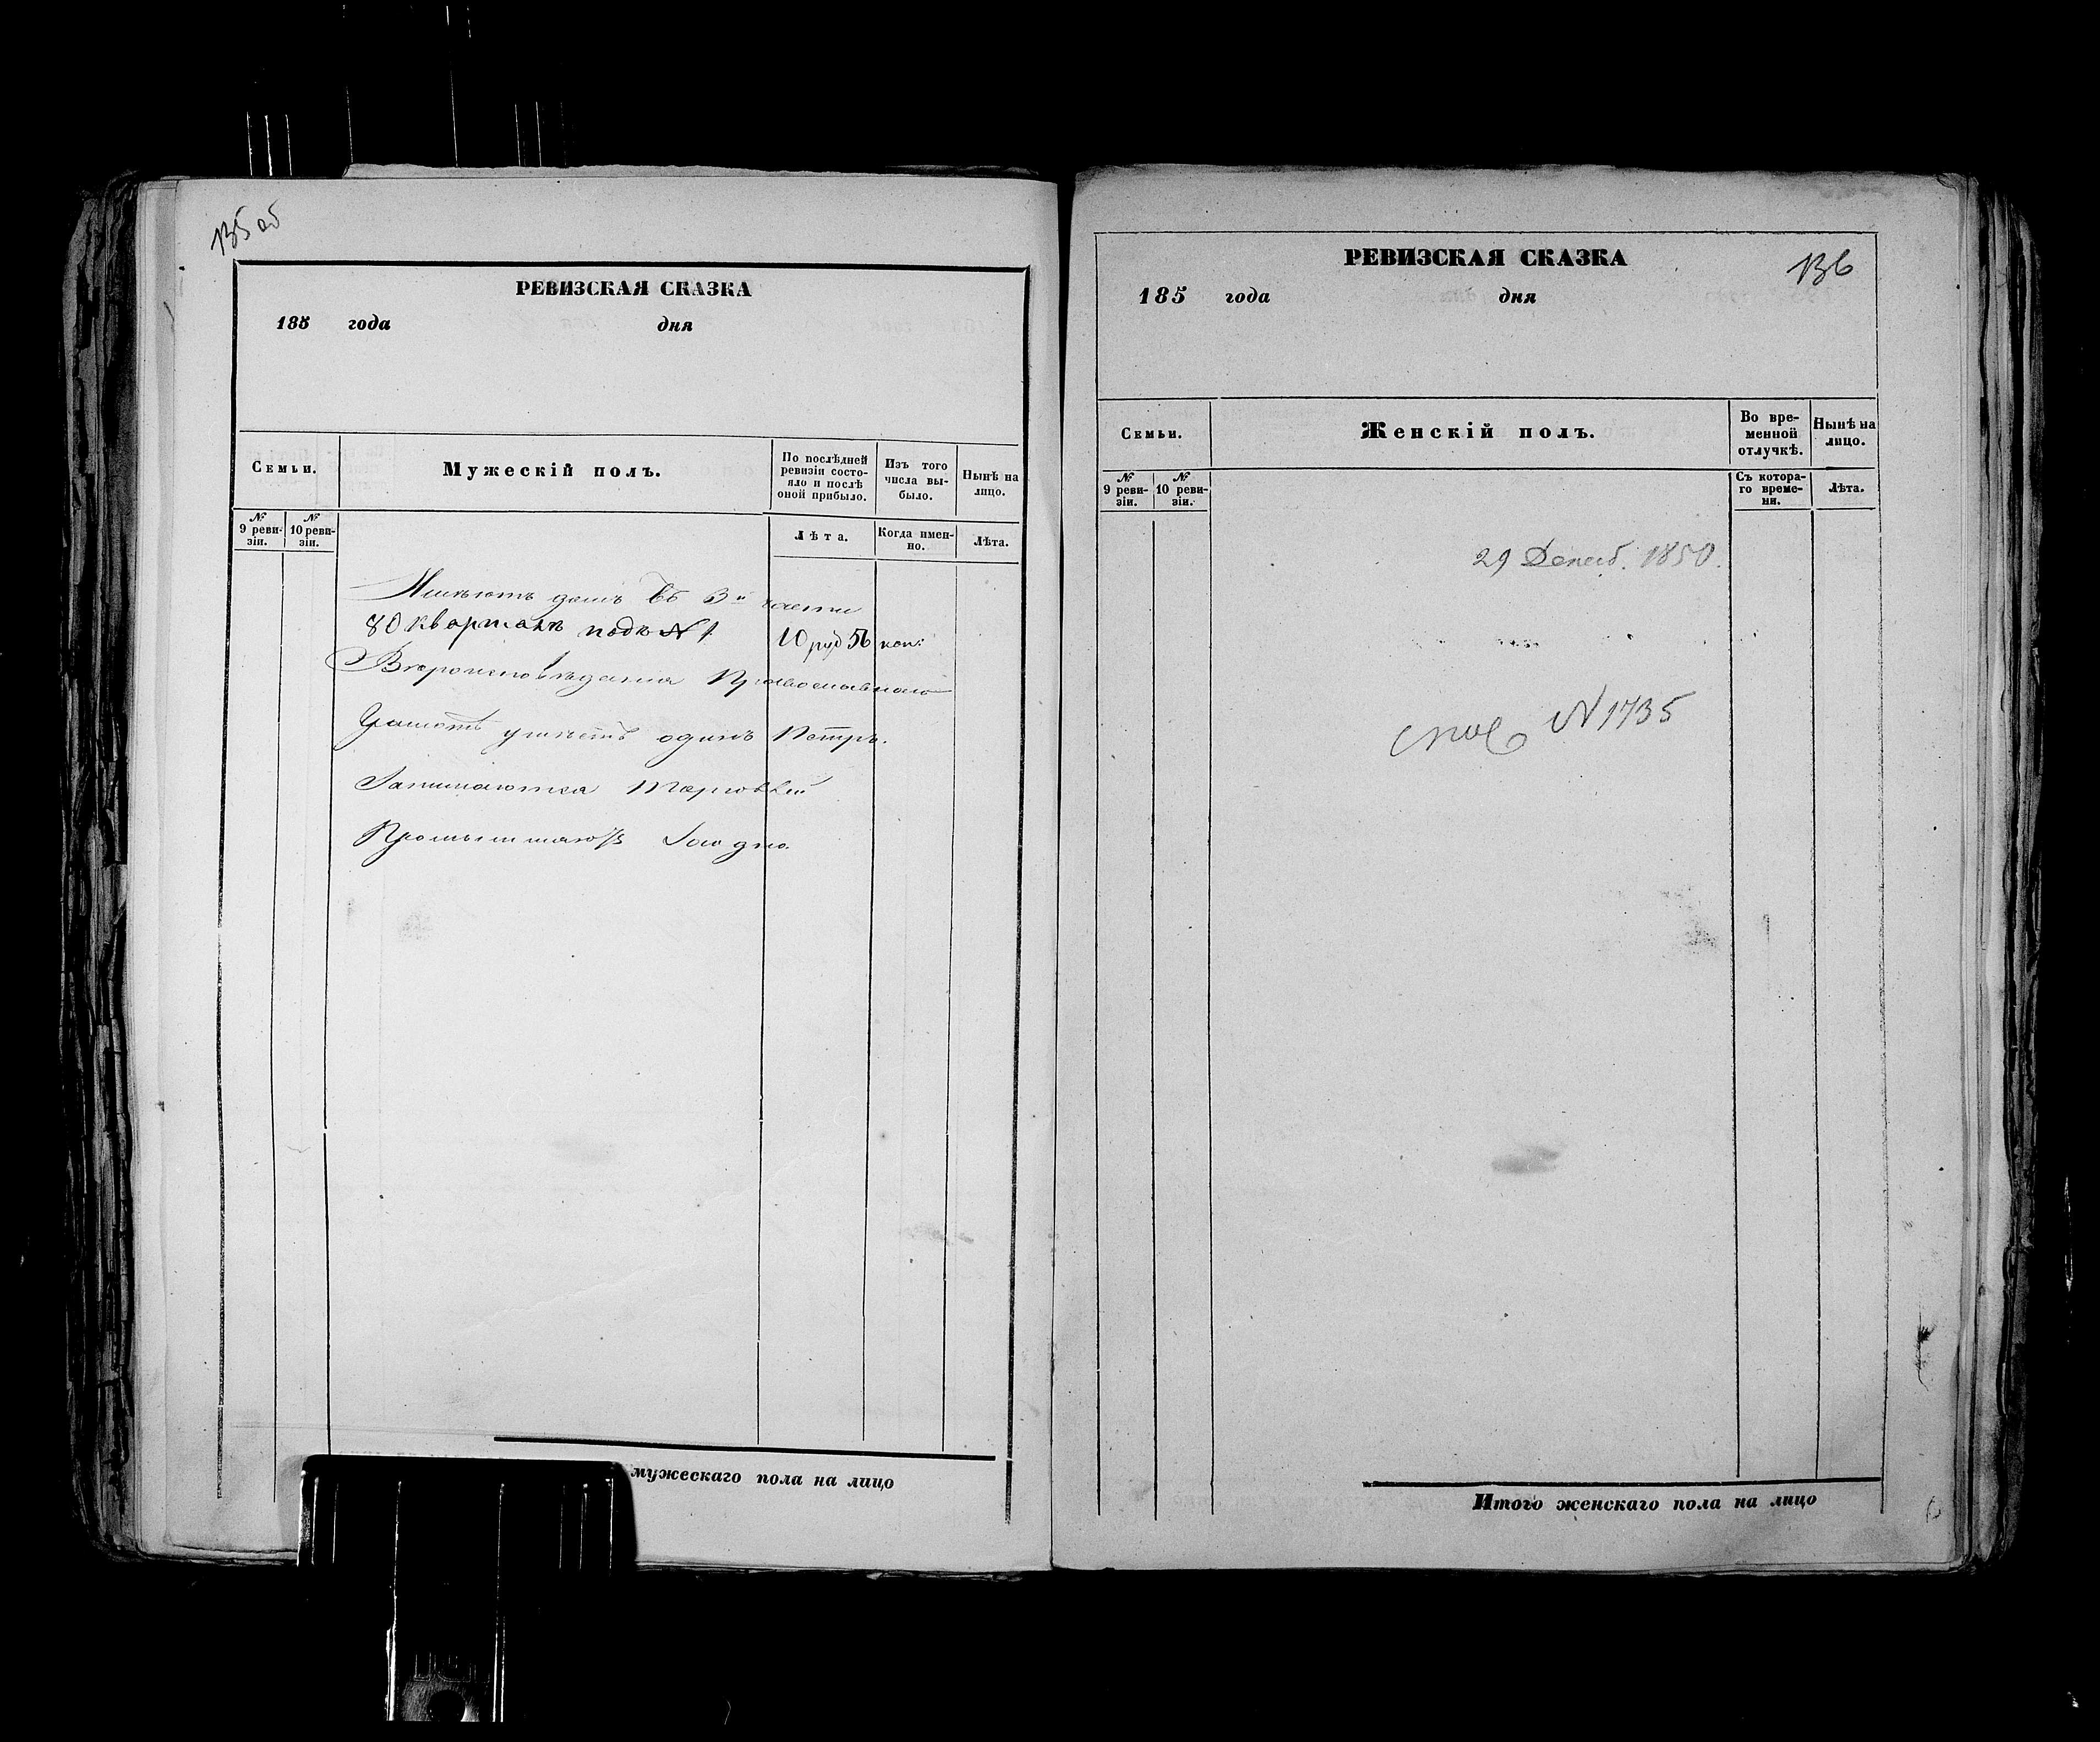 135 об
РЕВИЗСКАЯ СКАЗКА
185 года дня
Семьи.
Мужескій полъ.
По послѣдней ревизіи состо-
яло и послѣ оной прибыло.
Изъ того числа вы-
было.
Нынѣ на лицо.
№ 9 реви-
зіи.
№ 10 реви-
зіи.
Лѣта.
Когда имен-
но.
Лѣта.
Имѣютъ домъ въ 3й части
80 кварталѣ подъ № 1 10 руб 56 коп:
Вѣроисповѣданія Православнаго
Грамотѣ умѣетъ одинъ Петръ.
Занимаются Торговлей
Промышляютъ
мужескаго пола на лицо
136
РЕВИЗСКАЯ СКАЗКА
185 года дня
Семьи.
Женскій полъ.
Во вре-
менной
отлучкѣ.
Нынѣ на
лицо.
№ 9 реви-
зіи.
№ 10 реви-
зіи.
Съ котора-
го време-
ни.
Лѣта.
29 Декаб. 1850.
№ 1735
Итого женскаго пола на лицо